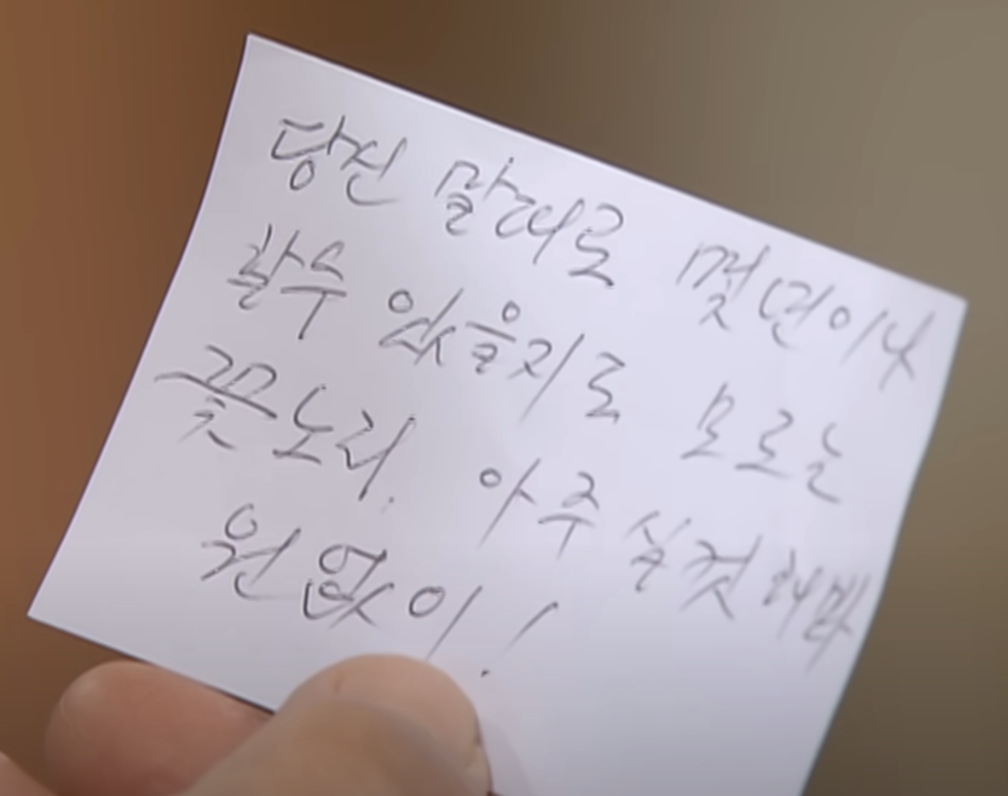 당신 말대로 몇 번이나
할 수 있을지도 모르는
꽃노리. 아주 실컷 해봐
원없이!